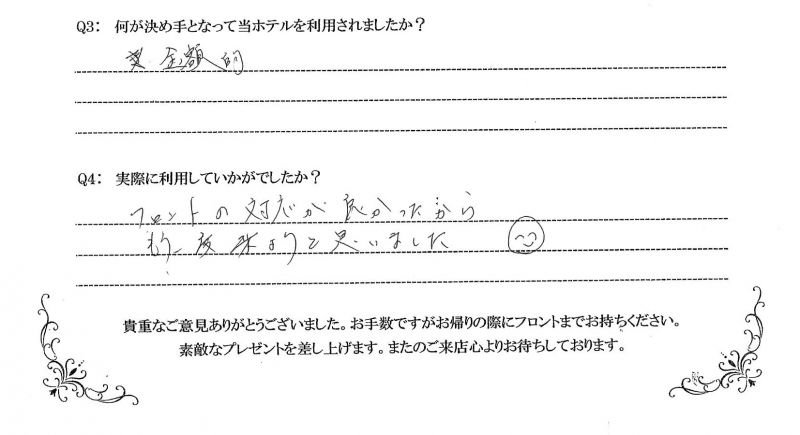 Q3： 何が決め手となって当ホテルを利用されましたか？
金額的
Q4： 実際に利用していかがでしたか？
フロントの対応が良かったから
もう一度来ようと思いました
貴重なご意見ありがとうございました。お手数ですがお帰りの際にフロントまでお持ちください。
素敵なプレゼントを差し上げます。またのご来店心よりお待ちしております。